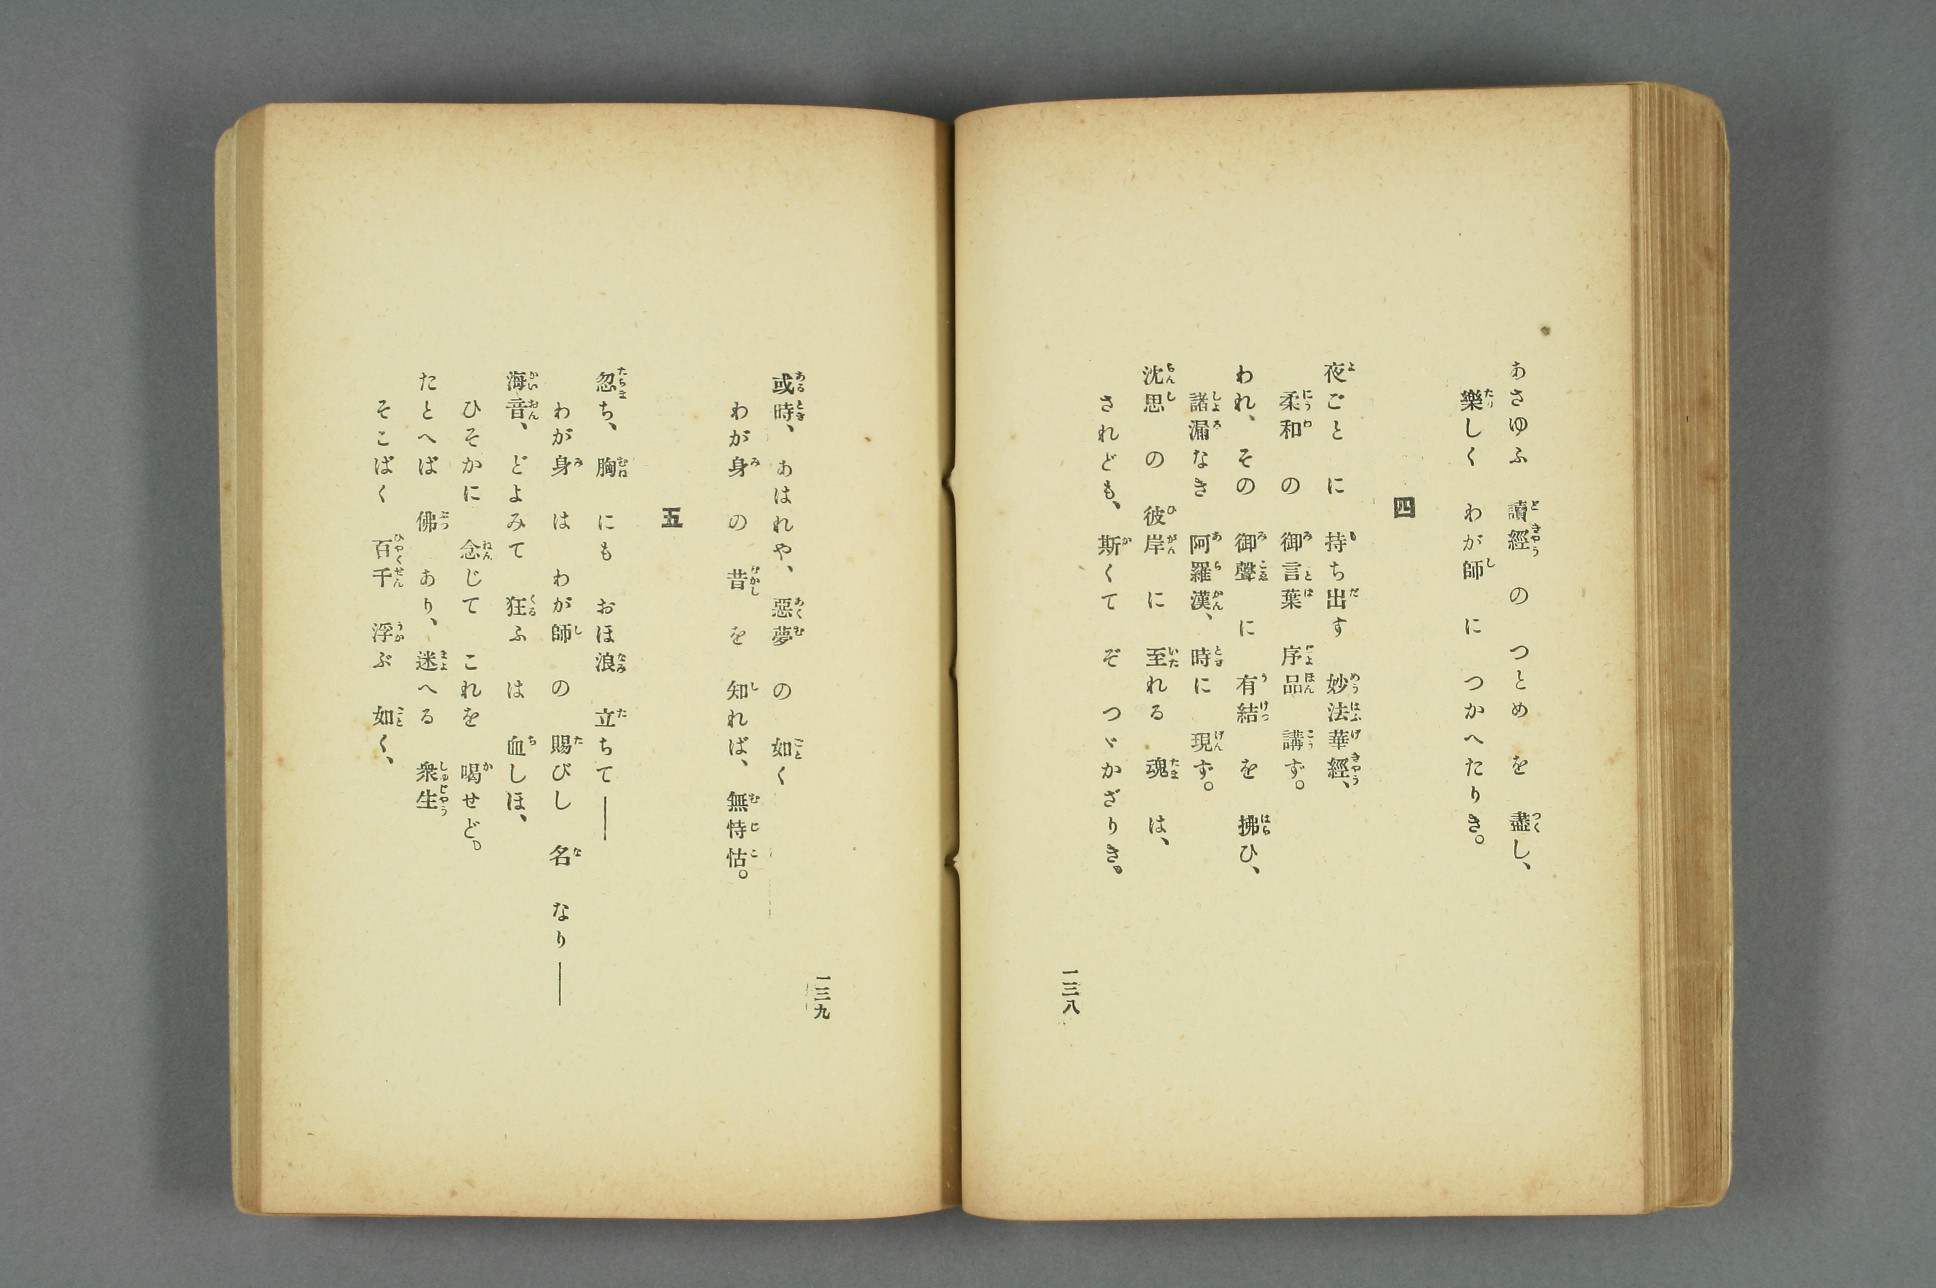 あさゆふ 讀經 の つとめ を 盡し、
樂しく わが師に つかへたりき。
四
夜ごと に 持ち出す 妙法華經、
柔和 の 御言葉 序品 講ず。
われ、その 御聲 に 有結 を 拂ひ、
諸漏なき 阿羅漢、時に 現ず。
沈思 の 彼岸 に 至れる 魂 は、
されども、斯くて ぞ つゞかざりき。
一三八
或時、あはれや、惡夢 の 如く
わが身 の 昔 を 知れば、無恃怙。
五
忽ち、胸 にも おほ浪 立ちて――
わが身 は わが師 の 賜びし 名 なり――
海音、どよみて 狂ふ は 血しほ、
ひそかに 念じて これを 喝せど。
たとへば 佛 あり、迷へる 衆生
そこばく 百千 浮ぶ 如く、
一三九